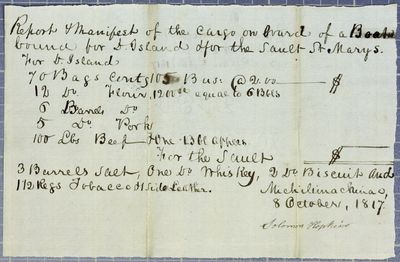 Report & Manifest of the Cargo on board of a Boat
bound for D. Island & for the Sault St. Marys.
For D. Island
70 Bags Contg 105 Bus: @ $
12 Do. Flour, 1200 equal to 6 Bbls
6 Barrels Do
5 Do. Pork
100 Lbs Beef One Bbl
For the Sault $
3 Barrels Salt, One Do Whiskey, 2 Do Biscuit and
1 1/2 Kegs Tobacco & 1 Side Leather. Michilimackinac,
8 October, 1817
Solomon Hopkins